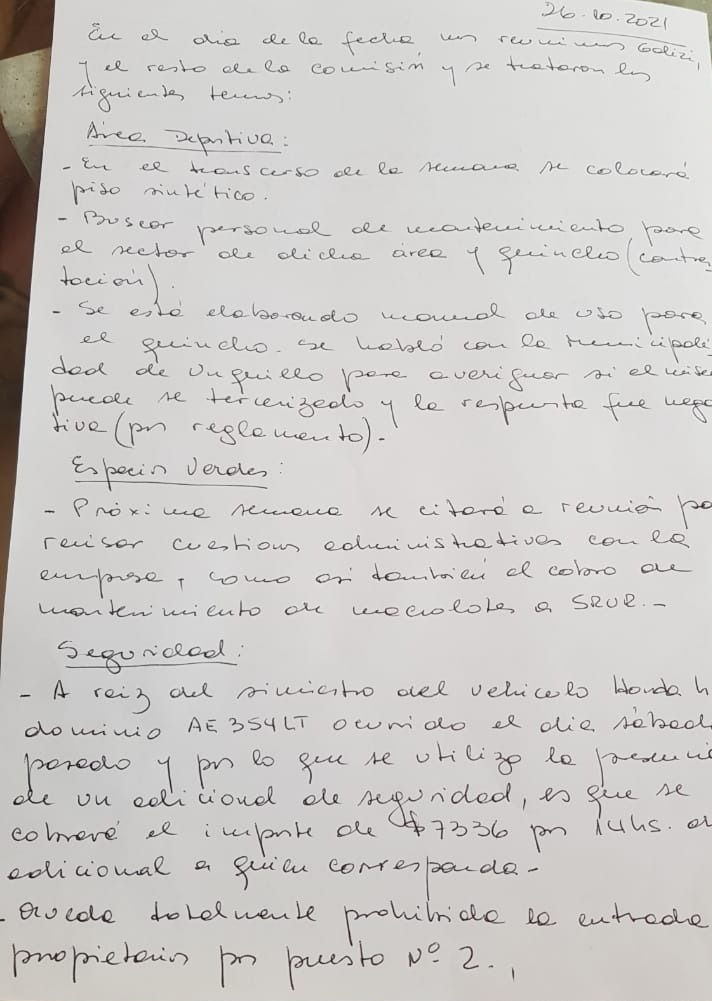 26.10.2021
En el día de la fecha nos reunimos Golizi,
y el resto de la comisión y se trataron los
siguientes temas:
Área Deportiva:
- En el transcurso de la semana se colocará
piso sintético.
- Buscar personal de mantenimiento para
el sector de dicha área y quincho (contra
tación).
- Se está elaborando manual de uso para
el quincho. Se habló con la Municipali
dad de Unquillo para averiguar si el mis
puede se tercerizado y la respuesta fue nega
tiva (por reglamento).-
Espacios Verdes:
- Próxima semana se citará a reunión pa
revisar cuestiones administrativas con la
empresa, como así también el cobro de
mantenimiento de macrolotes a SRUR.-
Seguridad:
- A raiz del siniestro del vehículo Honda h
dominio AE354LT ocurrido el día sábad
pasado y por lo que se utilizo la presenci
de un adicional de seguridad, es que se
cobrará el importe de $7336 por 14hs. d
adicional a quien corresponda-
- Queda totalmente prohibida la entrada
propietarios por puesto Nº 2.,